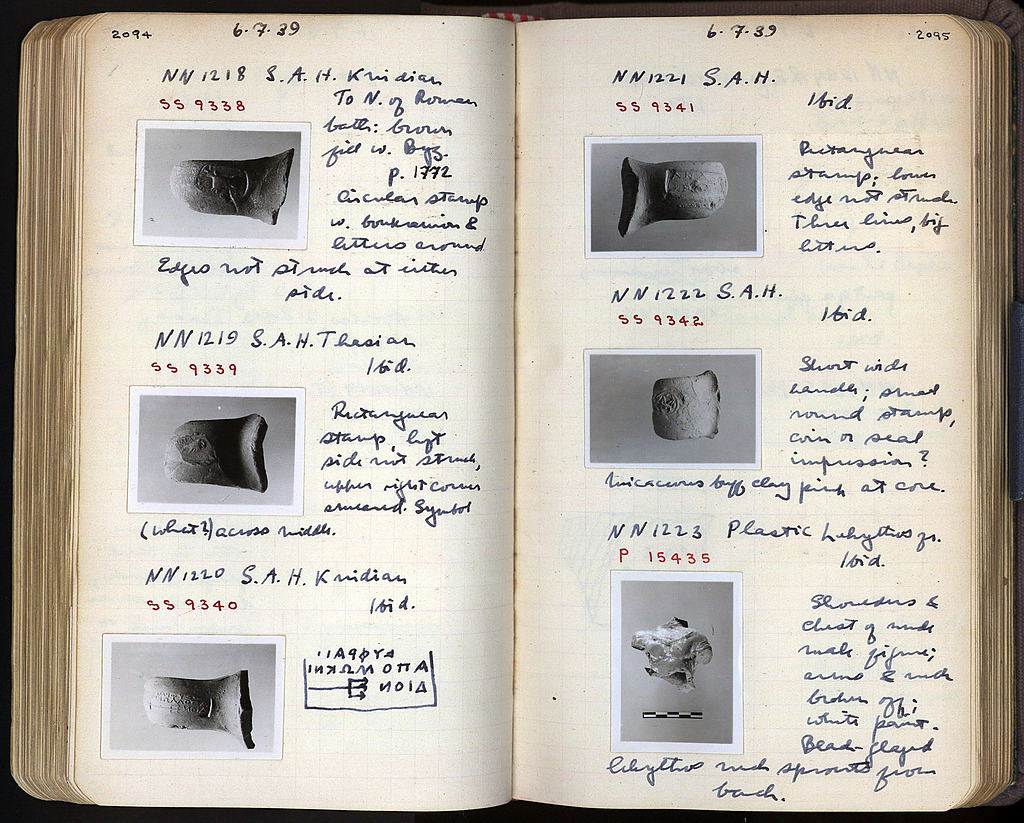 2094
6·7·39
NN1218 S.A.H. Knidian
SS 9338
To N. of Roman
bath: brown
fill w. Byz.
p. 1772
Circular stamp
w. boukranion &
letters around
Edges not struck at either
side.
NN1219 S.A.H. Thasian
SS 9339
Ibid.
Rectangular
stamp, left
side not struck,
upper right corner
smeared. Symbol
(what?) across middle.
NN1220 S.A.H. Knidian
SS 9340
Ibid.
6·7·39
2095
NN1221 S.A.H.
SS 9341
Ibid.
Rectangular
stamp; lower
edge not struck.
Three lines, big
letters.
NN1222 S.A.H.
SS 9342
Ibid.
Short wide
handle; small
round stamp,
coin or seal
impression?
Micaceous buff clay pink at core.
NN1223 Plastic Lekythos fr.
P 15435
Ibid.
Shoulders &
chest of nude
male figure;
arms & neck
broken off;
white paint.
Black-glazed
lekythos neck sprouts from
back.